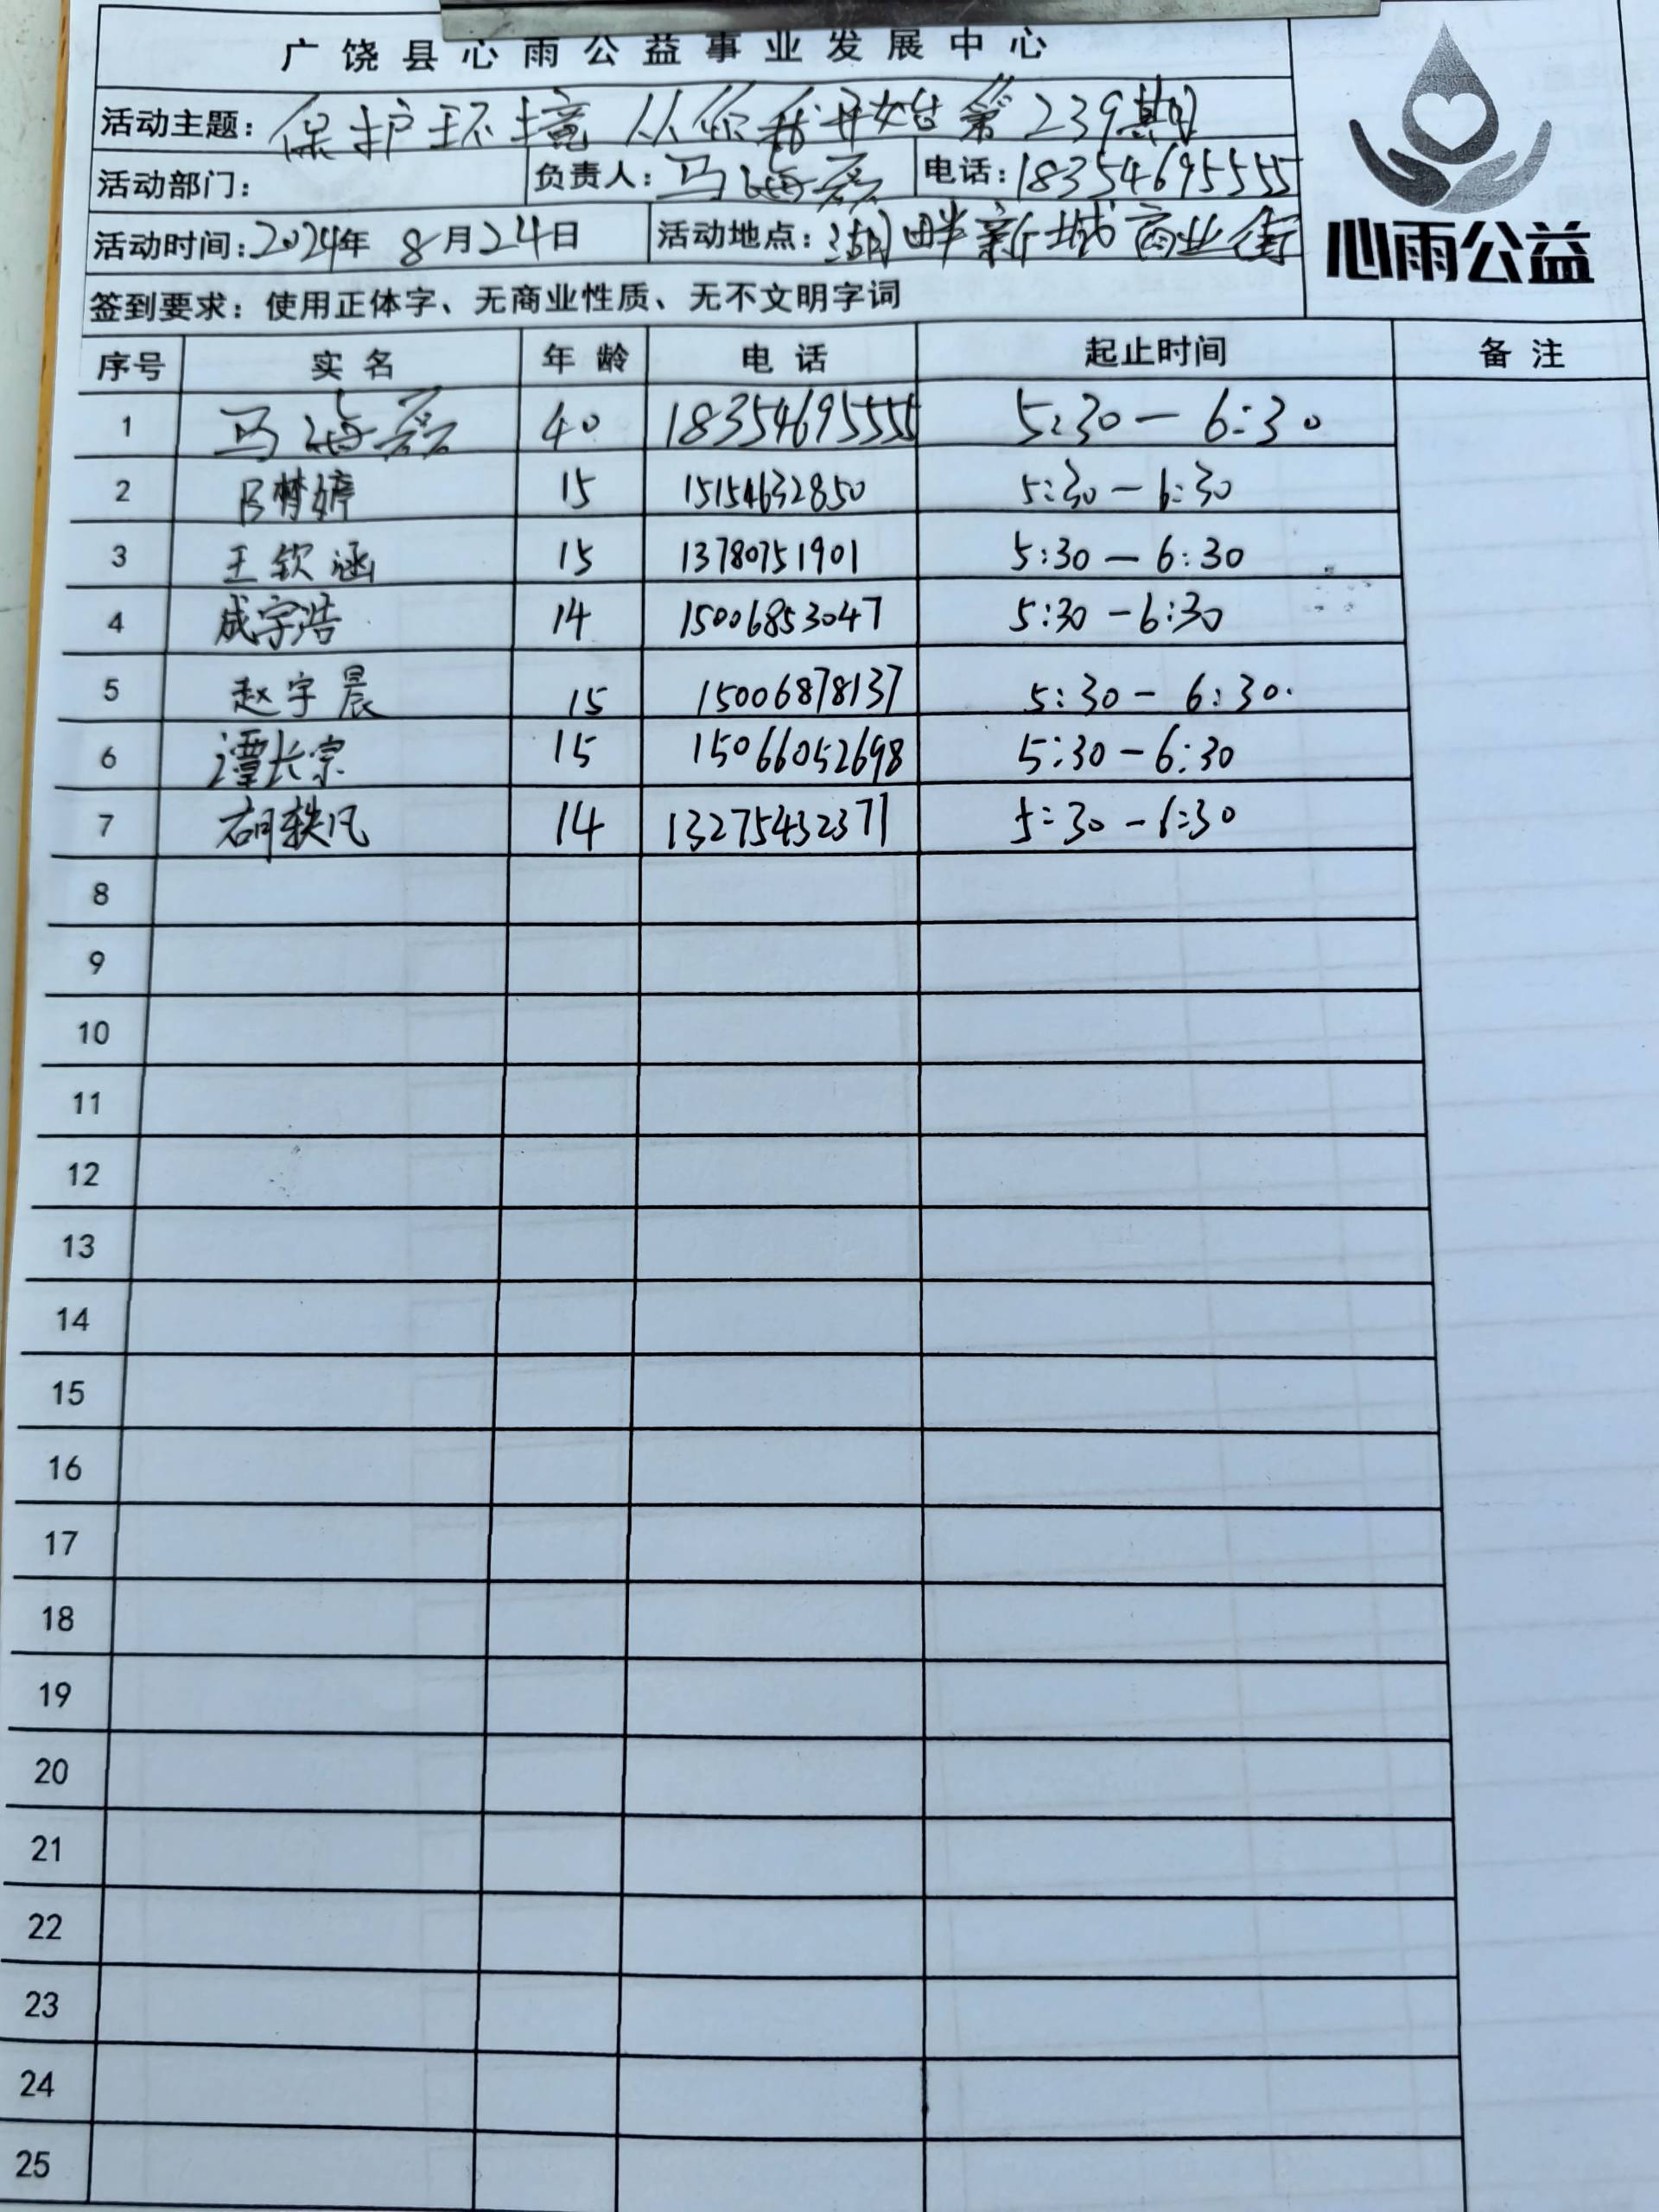 广饶县心雨公益事业发展中心
活动主题：保护环境 从你我开始 第239期
活动部门： 负责人：马海磊 电话：18354695555
活动时间：2024年 8月24日 活动地点：湖畔新城商业街
心雨公益
签到要求：使用正体字、无商业性质、无不文明字词
序号 实名 年龄 电话 起止时间 备注
1 马海磊 40 18354695555 5:30—6:30
2 梦婷 15 15154632850 5:30—6:30
3 王钦涵 15 13780751901 5:30—6:30
4 成宇浩 14 15006853047 5:30—6:30
5 赵宇晨 15 15006878137 5:30—6:30.
6 谭长宗 15 15066052698 5:30—6:30
7 胡轶凡 14 13275432371 5:30—6:30
8
9
10
11
12
13
14
15
16
17
18
19
20
21
22
23
24
25